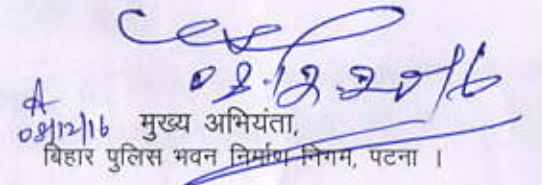 08.12.2016
08/12/16 मुख्य अभियंता,
बिहार पुलिस भवन निर्माण निगम, पटना ।